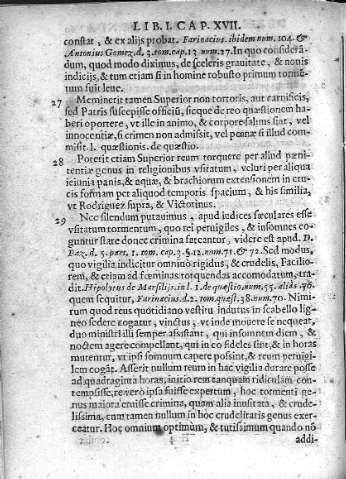 LIB. I. CAP. XVII.
constat, & ex alijs probat. Farinacius. ibidem num. 104. &
Antonius Gomez. d. 3. tom. cap. 13. num. 27. In quo considerã-
dum, quod modo diximus, de sceleris grauitate, & nouis
indicijs, & tum etiam si in homine robusto primum tormẽ-
tum fuit leue.
27 Meminerit tamen Superior non tortoris, aut carnificis,
sed Patris suscepisse officiũ, sicque de reo quæstionem ha-
beri oportere, vt ille in animo, & corpore saluus siat, vel
innocentiæ, si crimen non admissit, vel pœnæ si illud com-
misit. l. quæstionis. de quæstio.
28 Poterit etiam Superior reum torquere per aliud pœni-
tentiæ genus in religionibus vsitatum, veluri per aliqua
ieiunia panis, & aquæ, & brachiorum extensionem in cru-
cis formam per aliquod temporis spacium, & his similia,
vt Rodriguez supra, & Victorinus.
29 Nec silendum putauimus, apud iudices sæculares esse
vsitatum tormentum, quo rei peruigiles, & insomnes co-
guntur stare donec crimina fateantur, videre est apud. D.
Paz. d. 5. part. 1. tom. cap. 3. §. 12. num. 71. & 72. Sed modus,
quo vigilia indicitur omnino rigidus, & crudelis, Facilio-
rem, & etiam ad fœminas torquendas accomodatum, tra-
dit. Hipolytus de Marsilijs. in l. 1. de quæstio. num. 55. alias 76.
quem sequitur, Farinacius. d. 2. tom. quæst. 38. num. 70. Nimi-
rum quod reus quotidiano vestitu indutus in scabello lig-
neo sedere cogatur, vinctus, vt inde mouere se nequeat,
duo ministri illi semper assistant, qui insomnem diem, &
noctem agere compellant, qui in eo fideles sint, & in horas
mutentur, vt ipsi somnum capere possint, & reum peruigi-
lem cogãt. Asserit nullum reum in hac vigilia durare posse
ad quadraginta horas, initio rem tanquam ridiculam con-
tempsisse, re verò ipsa fuisse expertum, hoc tormenti ge-
nus maiora eruisse crimina, quam alia inusitata, & crude-
lissima, cum tamen nullum in hoc crudelitatis genus exer-
ceatur. Hoc omnium optimũm, & tutissimum quando nõ
addi-